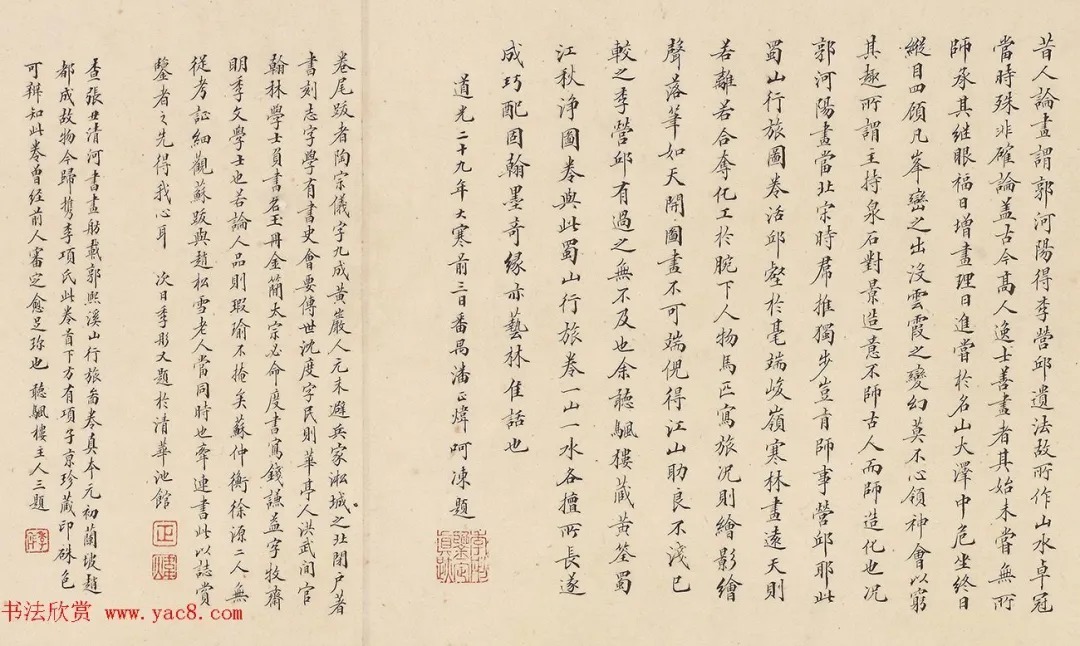 昔人論畫謂郭河陽得李營邱遺法故所作山水卓冠
當時殊非確論盖古今髙人逸士善畫者其始未嘗無所
師承其继眼福日增畫理日進嘗於名山大澤中危坐終日
縱目四顧凡峯巒之出没雲霞之變幻莫不心領神會以窮
其趣所謂主持泉石對景造意不師古人而師造化也况
郭河陽畫當北宋時羣推獨步豈肯師事營邱耶此
蜀山行旅圖卷活邱壑於毫端峻嶺寒林畫遠天則
若離若合奪化工於腕下人物馬匹寫旅况則繪影繪
聲落筆如天開圖畫不可端倪得江山助良不淺已
較之李營邱有過之無不及也余聴颿樓藏黄筌蜀
江秋净圖卷與此蜀山行旅卷一山一水各擅所長遂
成巧配因翰墨奇緣亦藝林佳話也
道光二十九年大寒前三日番禺潘正煒呵凍題
卷尾跋者陶宗儀字九成黄巖人元末避兵家淞城之北閉户著
書刻志字學有書史會要傳世沈度字民則華亭人洪武间官
翰林學士員書名玉冊金簡太宗必命度書寫錢謙益字牧齋
明季文學士也若論人品則瑕瑜不掩矣蘇仲衡徐源二人無
從考証細觀蘇跋與趙松雪老人當同時也牽連書此以誌賞
鑒者之先得我心耳 次日季彤又題於清華池館
正煒
查張丑清河書畫舫載郭熙溪山行旅畣卷真本元初蘭坡趙
都成故物今歸檇李項氏此卷首下方有項子京珍藏印硃色
可辨知此卷曾经前人審定愈足珎也 聴颿樓主人三題
书法欣赏 www.yac8.com